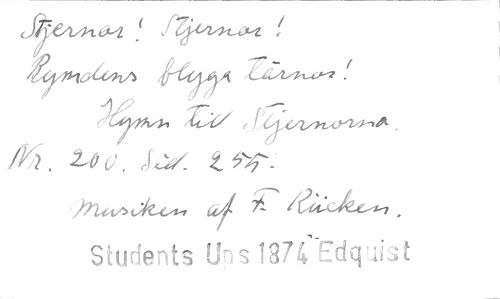 Stjernor! Stjernor!
Rymdens blyga tärnor!
Hymn till Stjernorna.
Nr. 200. Sid. 255.
Musiken af F. Kücken.
Students Ups 1874 Edquist